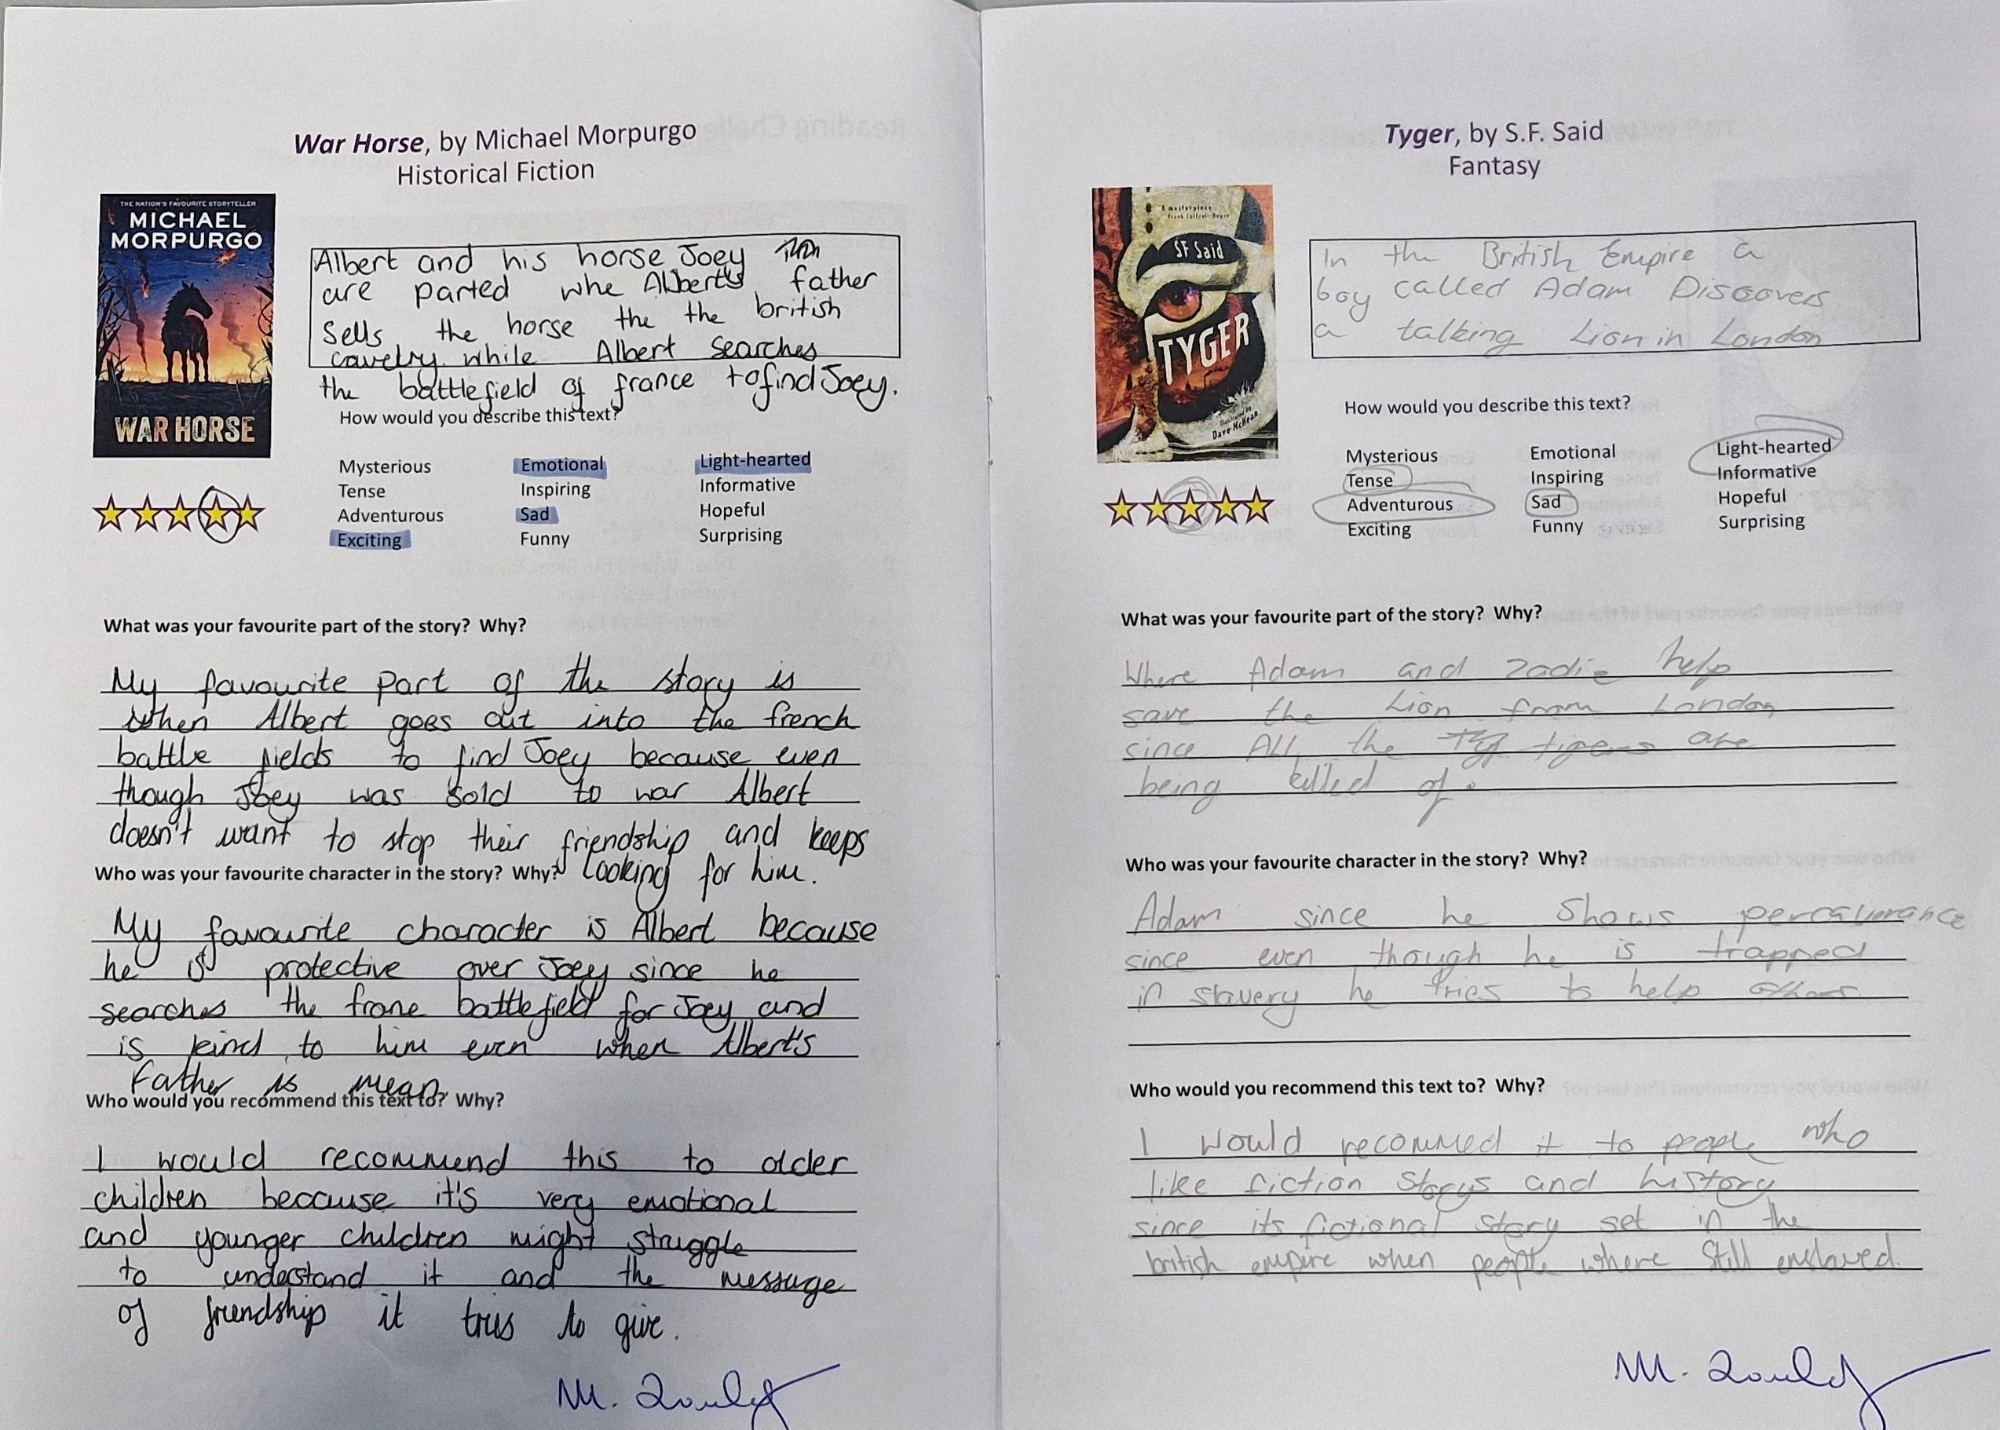 War Horse, by Michael Morpurgo
Historical Fiction
THE NATION'S FAVOURITE STORYTELLER
MICHAEL
MORPURGO
WAR HORSE
Albert and his horse Joey
are parted whe Albert's father
Sells the horse the the british
cavelry while Albert searches
the battlefield of france to find Joey.
How would you describe this text?
Mysterious Emotional Light-hearted
Tense Inspiring Informative
Adventurous Sad Hopeful
Exciting Funny Surprising
What was your favourite part of the story? Why?
My favourite part of the story is
when Albert goes out into the french
battle fields to find Joey because even
though Joey was sold to war Albert
doesn't want to stop their friendship and keeps
looking for him.
Who was your favourite character in the story? Why?
My favourite character is Albert because
he is protective over Joey since he
searches the frane battlefield for Joey and
is kind to him even when Albert's
Father is mean.
Who would you recommend this text to? Why?
I would recommend this to older
children because it's very emotional
and younger children might struggle
to understand it and the message
of friendship it tris to give.
M.
Tyger, by S.F. Said
Fantasy
A masterpiece
Frank Cottrell-Boyce
SF Said
TYGER
Illustrated by
Dave McKean
In the British Empire a
boy called Adam Discovers
a talking Lion in London
How would you describe this text?
Mysterious Emotional Light-hearted
Tense Inspiring Informative
Adventurous Sad Hopeful
Exciting Funny Surprising
What was your favourite part of the story? Why?
Where Adam and Zadie help
save the Lion from London
since All the tigers are
being killed of.
Who was your favourite character in the story? Why?
Adam since he shows percaverance
since even though he is trapped
in slavery he tries to help others
Who would you recommend this text to? Why?
I would recommed it to people who
like fiction storys and history
since its fictional story set in the
british empire when people where still enslaved.
M.